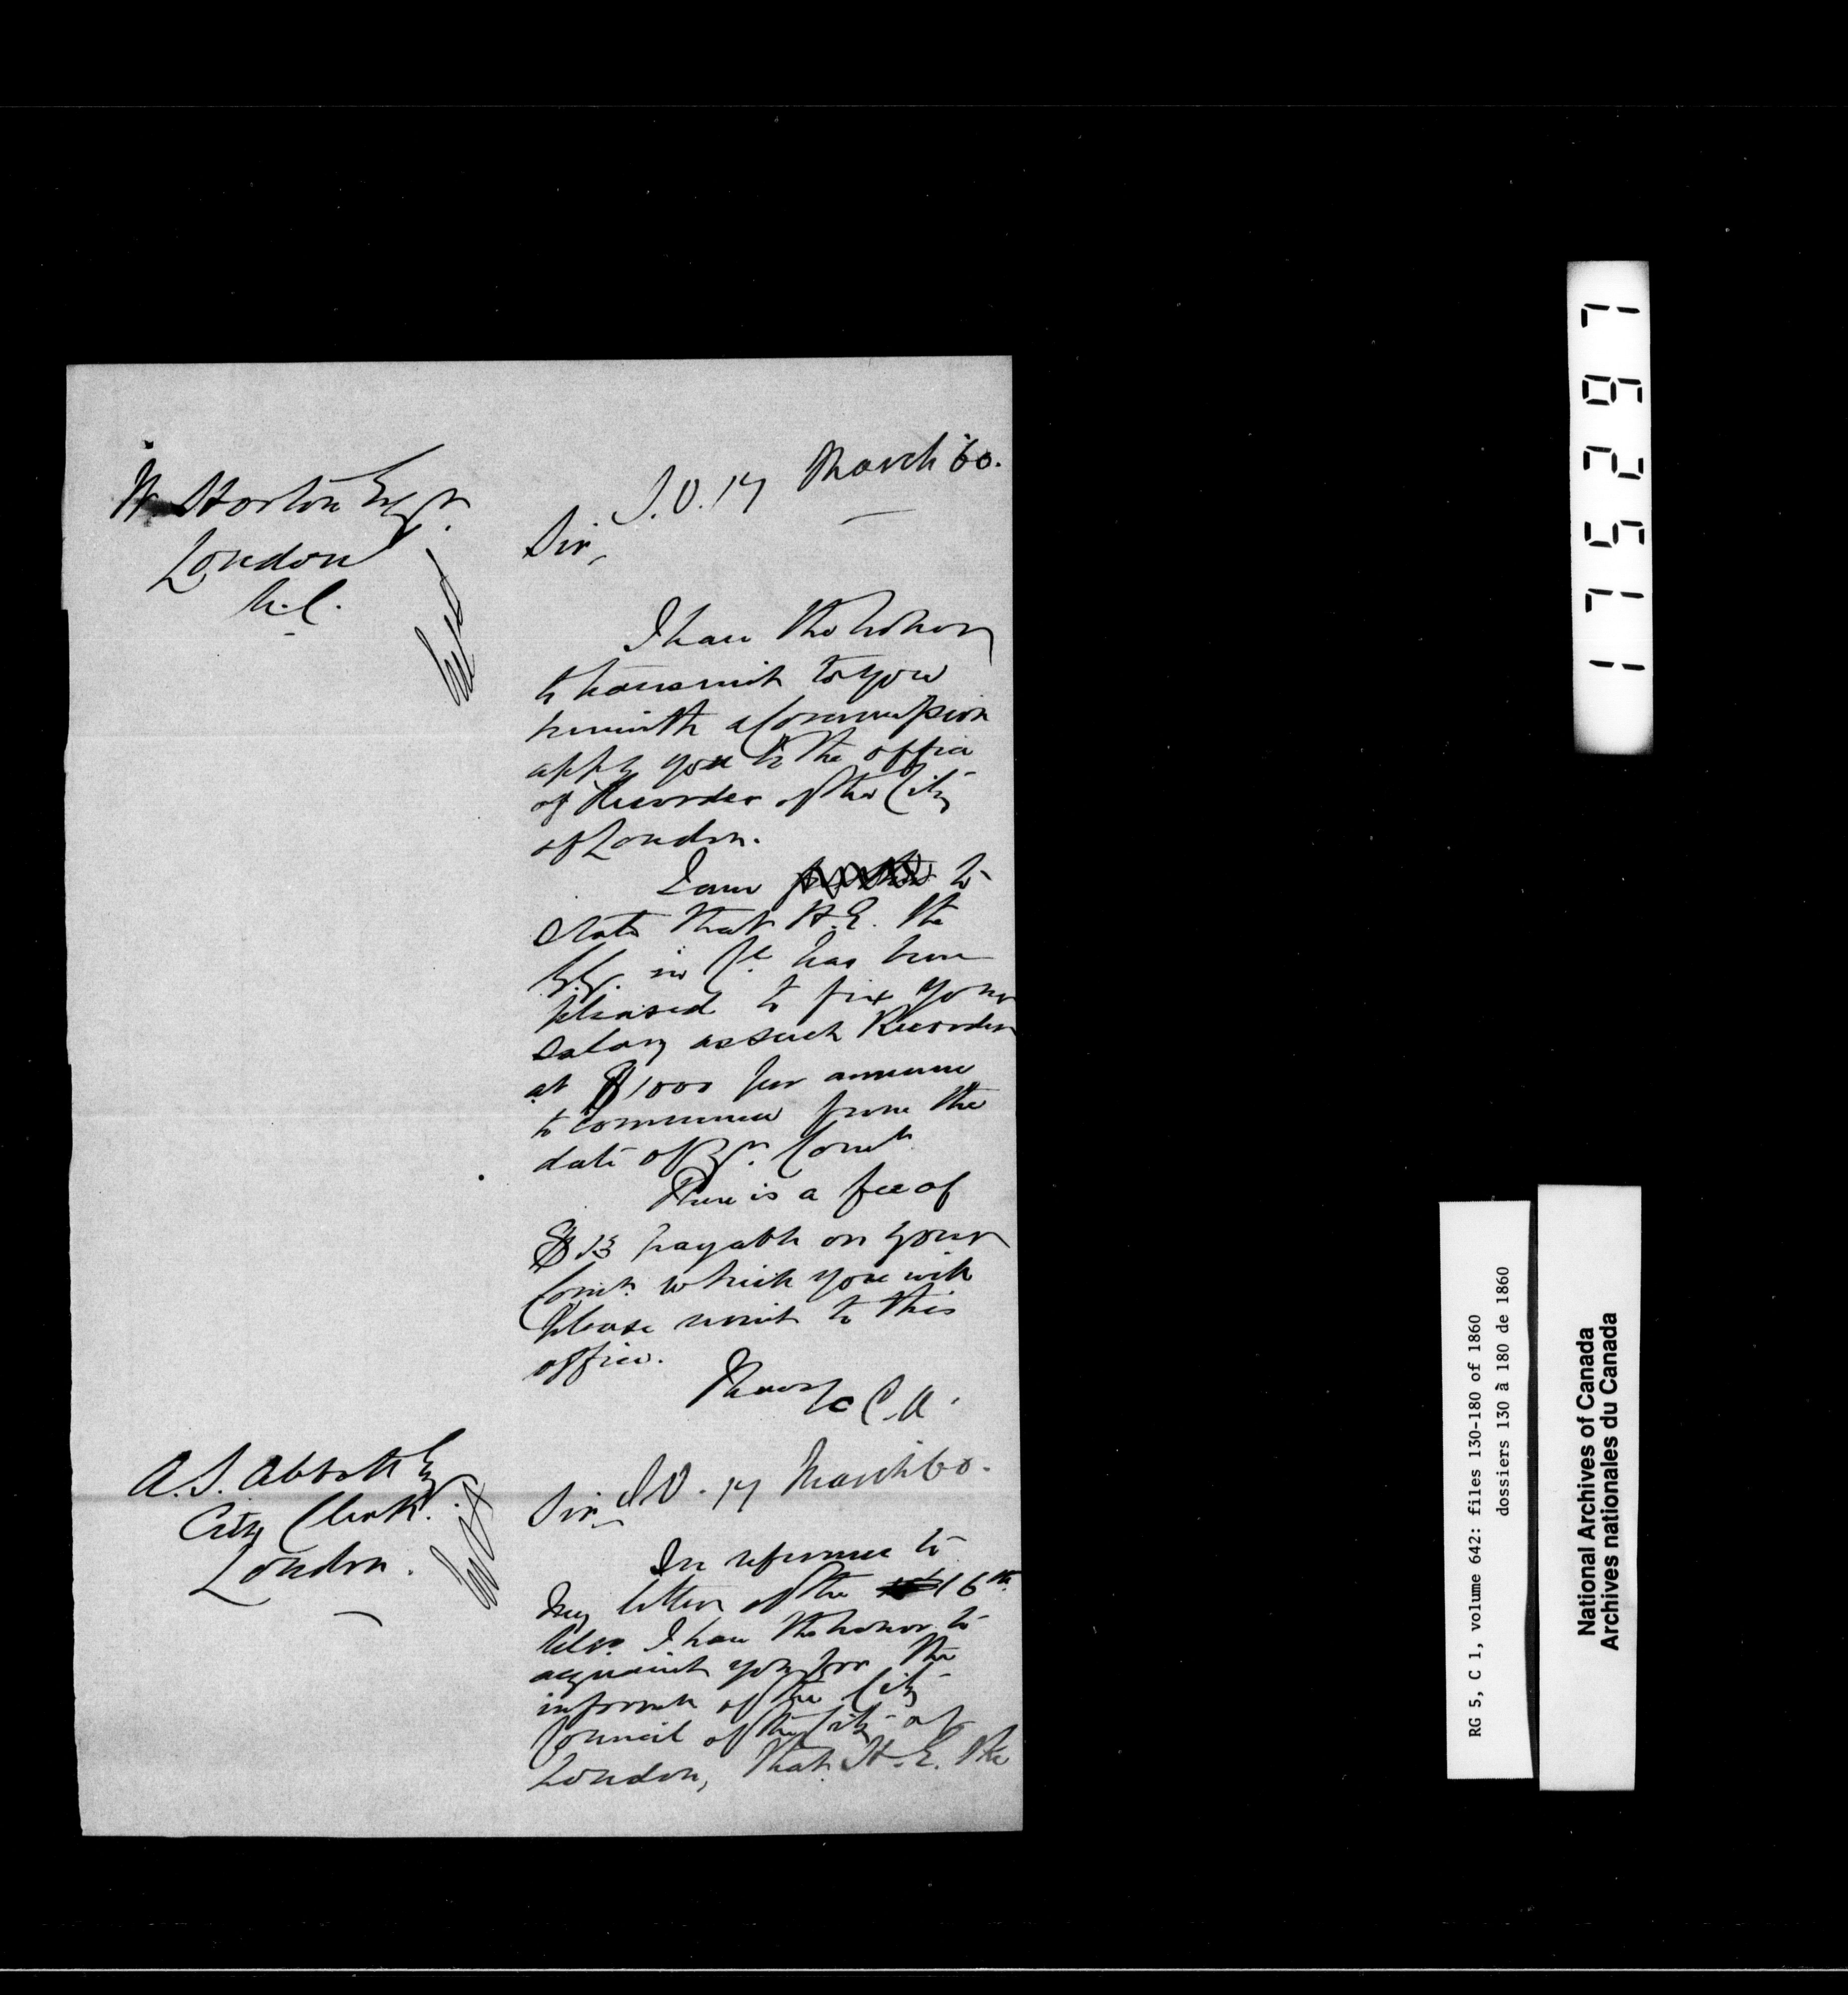 W Horton Esqr.
London
U.C.
S.O. 17 March 60.
Sir,
I have the honor
to transmit to you
herewith a Commission
appg you to the office
of Recorder of the City
of London.
I am to
state that H.E. the
G.G. in Cl. has been
pleased to fix your
salary as such Recorder
at $1000 per annum
to commence from the
date of yr. Comn.
There is a fee of
$13 payable on your
Comn. which you will
please remit to this
office.
I have &c C.A.
A.S. Abbott Esqr
City Clerk.
London.
S.O. 17 March 60.
Sir,
In reference to
my letter of the 16th
I have the honor to
acquaint you for the
informn of the City
Council of the City of
London, that H.E. the
175297
RG 5, C 1, volume 642: files 130-180 of 1860
dossiers 130 à 180 de 1860
National Archives of Canada
Archives nationales du Canada